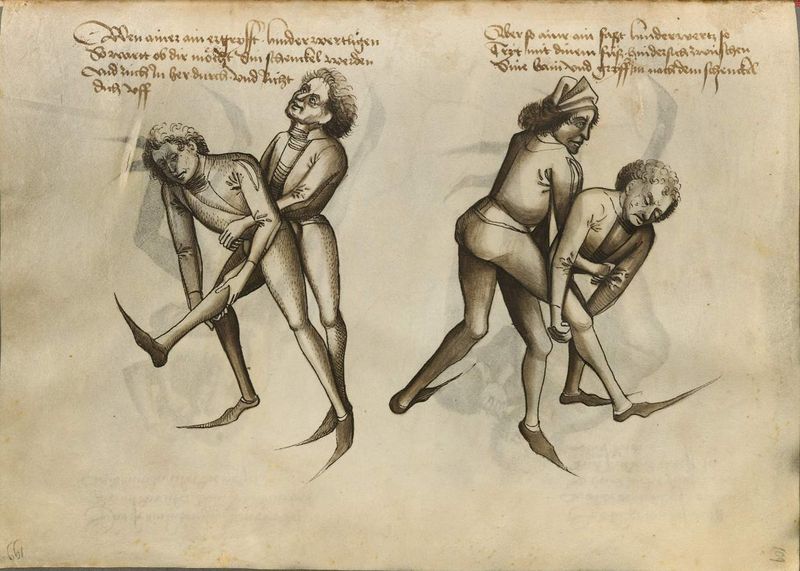 Wen ainer ain ergrifft hinderwertlingen
So wart ob dir möcht Sin schenckel werden
Vnd zuch In her durch vnd richt
dich vff
Aber so ainr ain faßt hinderwertz so
Tryt mit dinem fuß hindersich zwüschen
Sine bain vnd griff Im nach dem schenckel
169